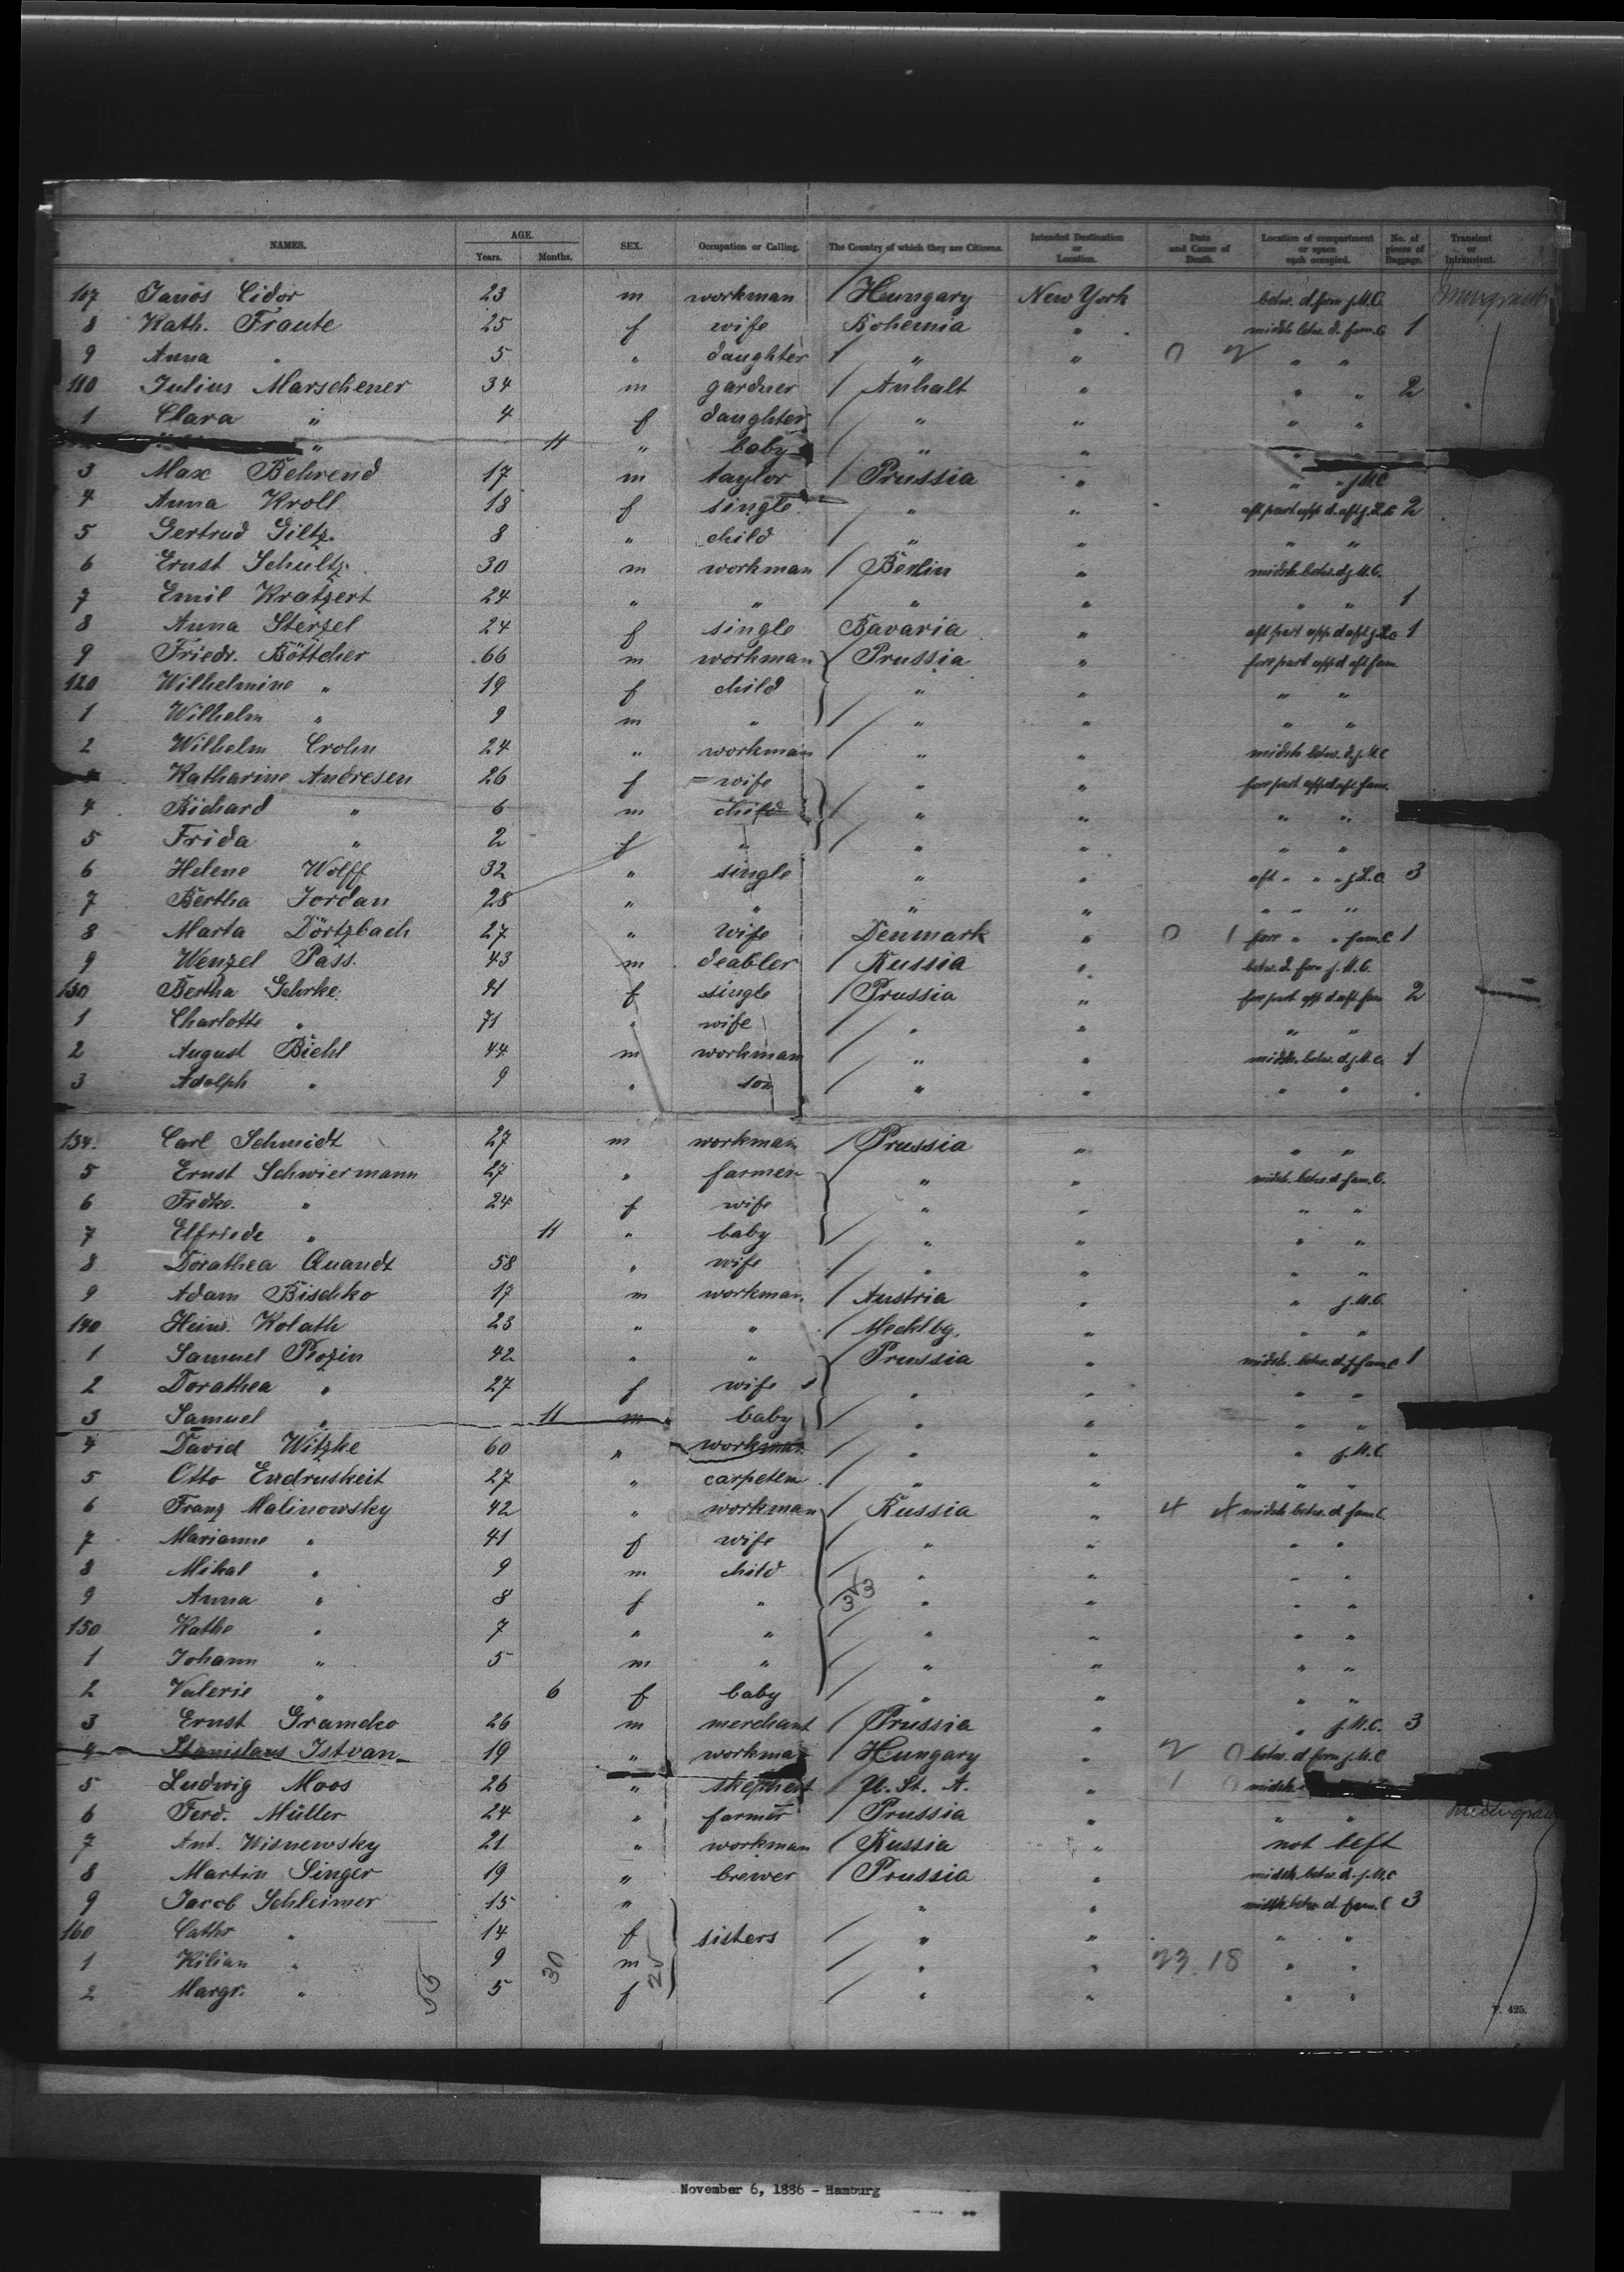 NAMES. AGE. SEX. Occupation or Calling. The Country of which they are Citizens. Intended Destination or Location. Date and Cause of Death. Location of compartment or space each occupied. No. of pieces of Baggage. Transient or Intransient.
Years. Months.
107 Janós Cidor 23 m workman / Hungary New York betw. d. forw j. M. C.
8 Kath. Fraute 25 f wife Bohemia " midsh. betw. d. fam. C 1
9 Anna " 5 " daughter / " " 0 2 " "
110 Julius Marschener 34 m gardner / Anhalt " " " 2
1 Clara " 4 f daughter " " " "
" 11 " baby / " " "
3 Max Behrend 17 m taylor / Prussia " " " j M.C
4 Anna Kroll 18 f single " " aft part upp d. aft j. L. C 2
5 Gertrud Giltz. 8 " child / " " " "
6 Ernst Schultz. 30 m workman / Berlin " midsh. betw. d. j. M. C.
7 Emil Kratzert 24 " " / " " " " 1
8 Anna Sterzel 24 f single Bavaria " aft part upp d aft j. L. c 1
9 Friedr. Böttcher 66 m workman / Prussia " fore part upp d aft fam.
120 Wilhelmine " 19 f child / " " " "
1 Wilhelm " 9 m " / " " " "
2 Wilhelm Crohn 24 " workman / " " midsh betw. d. j. M. C
Katharine Andresen 26 f wife " " fore part upp d aft fam.
4 Richard " 6 m child / " " " "
5 Frida " 2 f " / " " " "
6 Helene Wolff 32 " single " " aft " " " j. L. C. 3
7 Bertha Jordan 28 " " " " " " "
8 Marta Dörtzbach 27 " wife Denmark " 0 1 fore " " fam. C 1
9 Wenzel Pass. 43 m deabler / Russia " betw. d. forw j. M. C.
130 Bertha Gehrke. 41 f single / Prussia " fore part upp d. aft fam 2
1 Charlotte " 71 " wife / " " " "
2 August Biehl 44 m workman / " " midsh. betw. d. j. M. C. 1
3 Adolph " 9 " son / " " " "
134. Carl Schmidt 27 m workman / Prussia " " "
5 Ernst Schwiermann 27 " farmer " " midsh. betw. d. fam. C.
6 Frdke. " 24 f wife / " " " "
7 Elfriede " 11 " baby / " " " "
8 Dorathea Quandt 58 " wife / " " " "
9 Adam Bischko 17 m workman / Austria " " j. M. C.
140 Heinr. Kolath 23 " " / Mecklbg. " " "
1 Samuel Rozin 42 " " Prussia " midsh. betw. d. fam. C 1
2 Dorathea " 27 f wife / " " " "
3 Samuel " 11 m baby / " " " "
4 David Witzke 60 " workman / " " " j. M. C.
5 Otto Endruskeit 27 " carpeten / " " " "
6 Franz Malinowsky 42 " workman / Russia " 4 4 midsh betw. d fam C.
7 Marianne " 41 f wife / " " " "
8 Mikal " 9 m child / " " " "
9 Anna " 8 f " 3 3 " " " "
150 Kathe " 7 " " / " " " "
1 Johann " 5 m " / " " " "
2 Valerie " 6 f baby / " " " "
3 Ernst Gramcko 26 m merchant / Prussia " " j. M. C. 3
4 Stanislaus Istvan 19 " workma / Hungary " 2 0 betw. d forw j. M. C
5 Ludwig Moos 26 " / U. St. A. " 1 0 midsh
6 Ferd. Müller 24 " farmer / Prussia " " "
7 Ant. Wisnewsky 21 " workman / Russia " not left
8 Martin Singer 19 " brewer / Prussia " midsh betw. d. j. M. C
9 Jacob Schleimer 15 " " " midsh betw d. fam. C 3
160 Cathr " 14 f sisters / " " " "
1 Kilian " 9 m / " " 23 18 " "
2 Margr. " 5 f / " " " "
55 30 25
F. 425.
November 6, 1886 - Hamburg